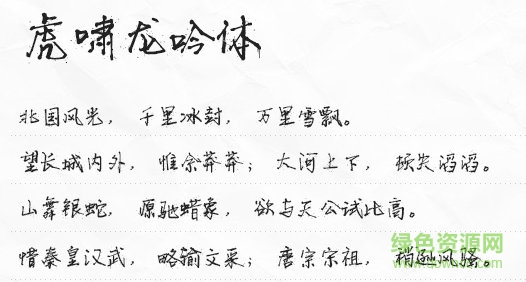 虎啸龙吟体
北国风光， 千里冰封， 万里雪飘。
望长城内外， 惟余莽莽； 大河上下， 顿失滔滔。
山舞银蛇， 原驰蜡象， 欲与天公试比高。
惜秦皇汉武， 略输文采； 唐宗宗祖， 稍逊风骚。
绿色资源网